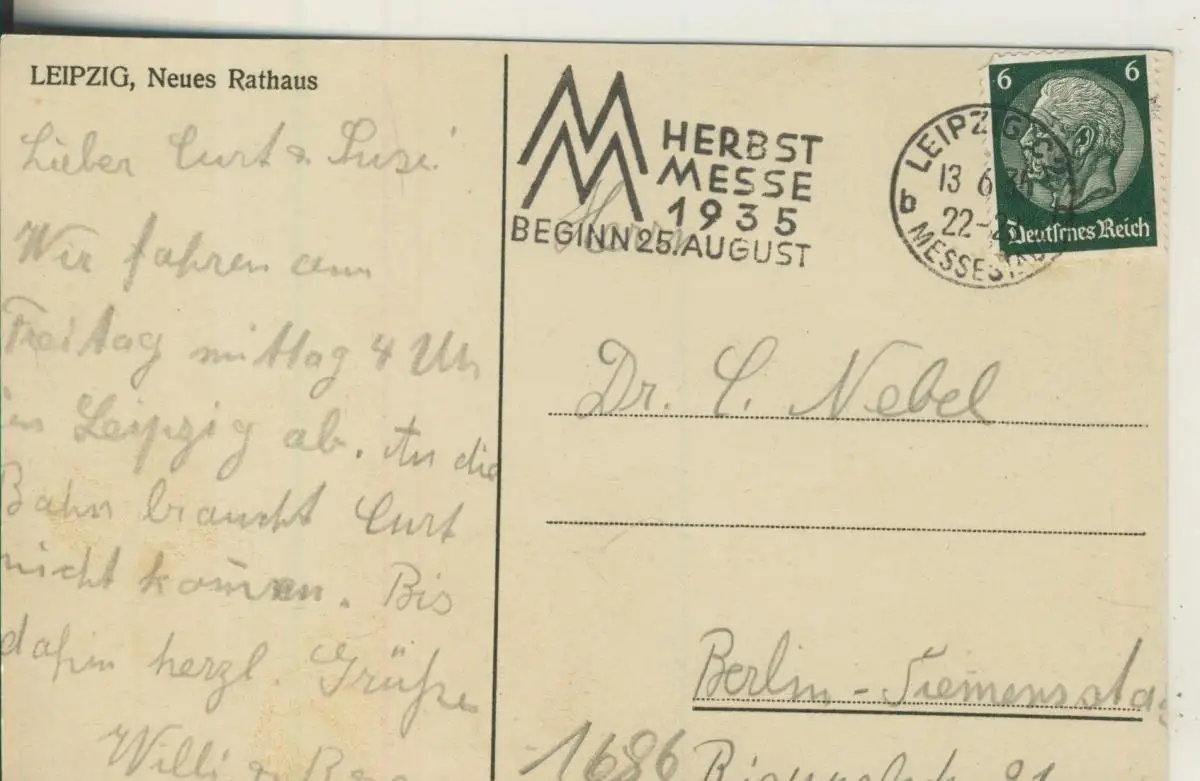 LEIPZIG, Neues Rathaus
Lieber Curt & Susi!
Wir fahren am
Freitag mittag 4 Uhr
in Leipzig ab. An die
Bahn braucht Curt
nicht kommen. Bis
dahin herzl. Grüße
Willi &
HERBST
MESSE
1935
BEGINN 25. AUGUST
LEIPZIG C2
13 6 35
22-2
b
MESSESTADT
6 6
Deutsches Reich
Herrn
Dr. C. Nebel
Berlin - Siemenssta
1686